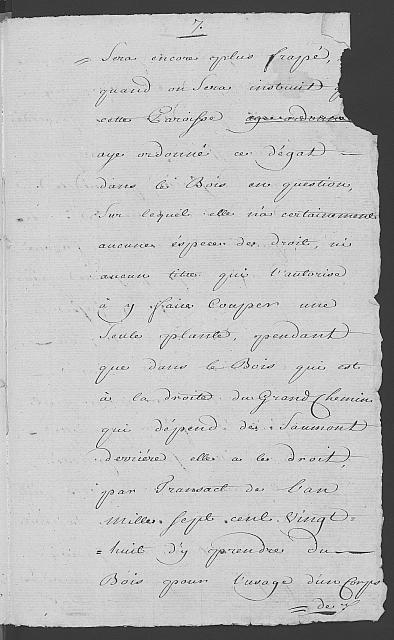 7.
= Sera encore plus frappé,
quand on Sera instruit
cette Paroisse aye ordonné
aye ordonné ce dégat —
dans le Bois en question,
Sur lequel elle n'a certainement
aucunes éspeces de droit, ni
aucun titre qui l'autorise
à y faire Couper une
Seule plante, pendant
que dans le Bois qui est
à la droite du Grand Chemin
qui dépend de Saumont
derriére elle a le droit,
par Transact de l'an
Mille Sept cent Vingt-
=huit d'y prendre du —
Bois pour l'usage d'un Corps
= de